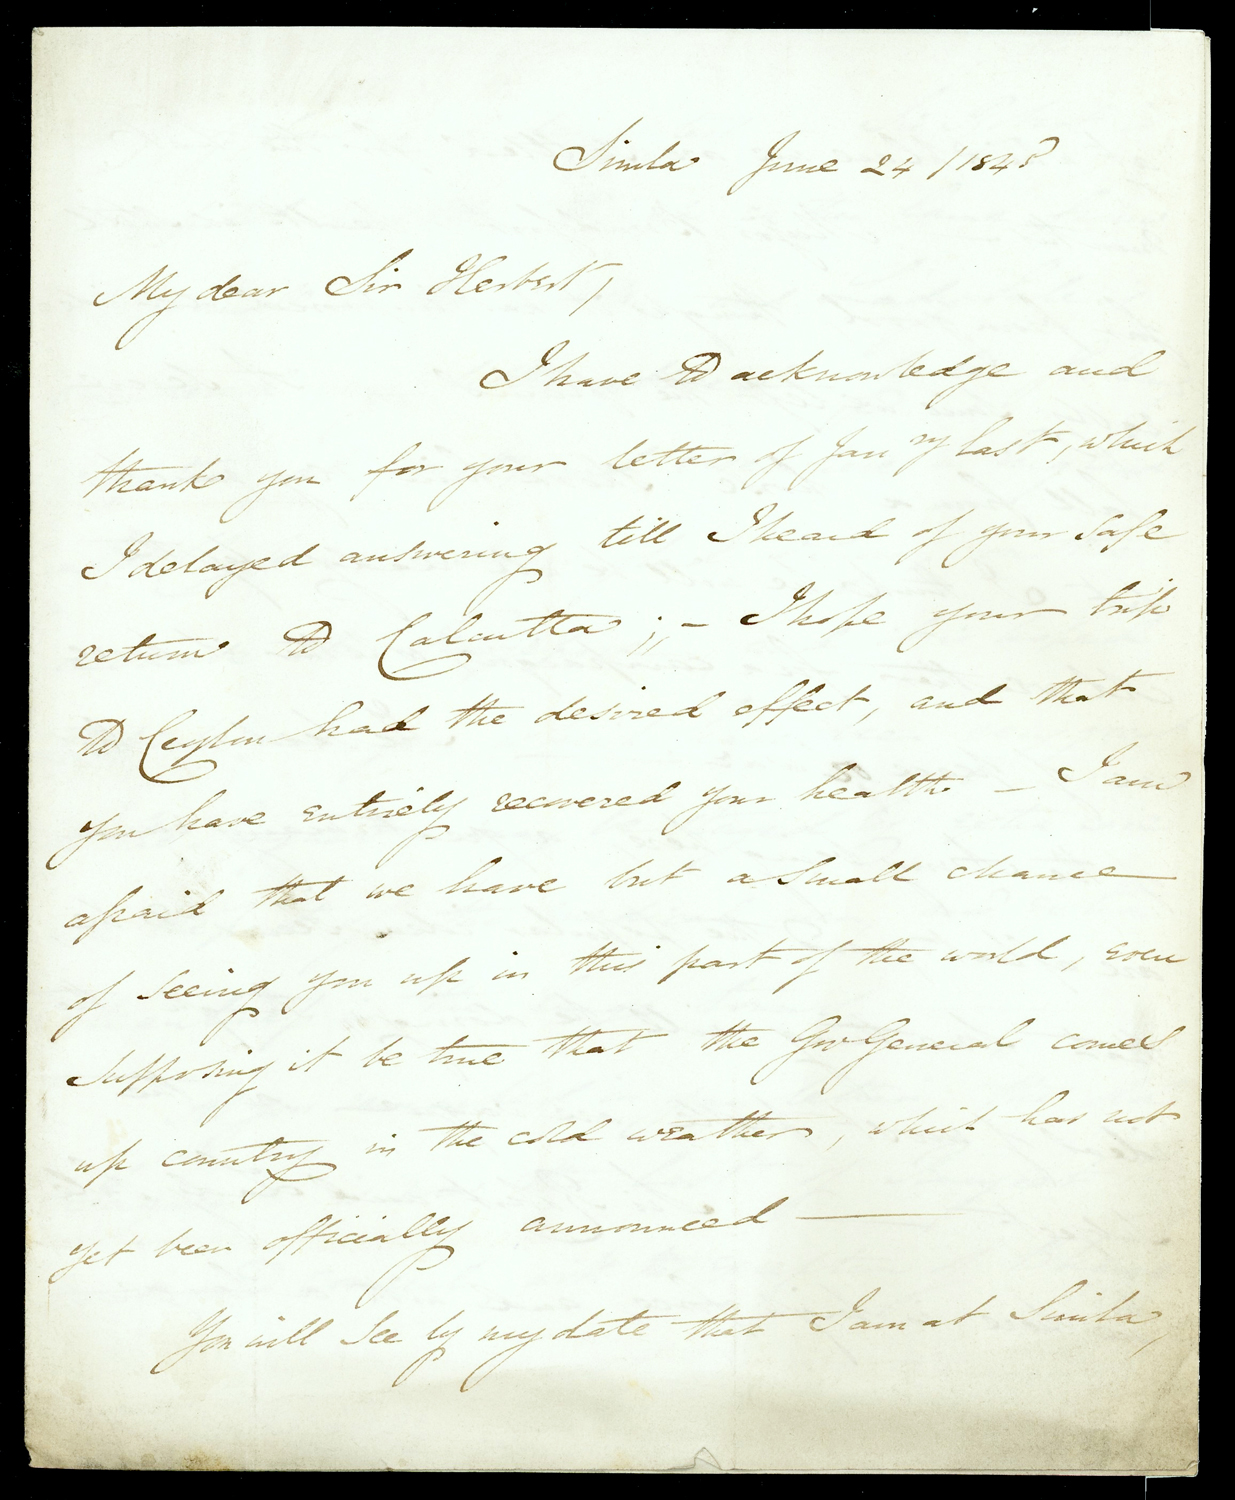 Simla June 24 / 1848
My dear Sir Herbert,
I have to acknowledge and
thank you for your letter of Jan ry last, which
I delayed answering till I heard of your safe
return to Calcutta ; – I hope your trip
to Ceylon had the desired effect, and that
you have entirely recovered your health – I am
afraid that we have but a small chance
of seeing you up in this part of the world, even
supposing it be true that the Gov General comes
up country in the cold weather, which has not
yet been officially announced —
You will see by my date that I am at Simla,